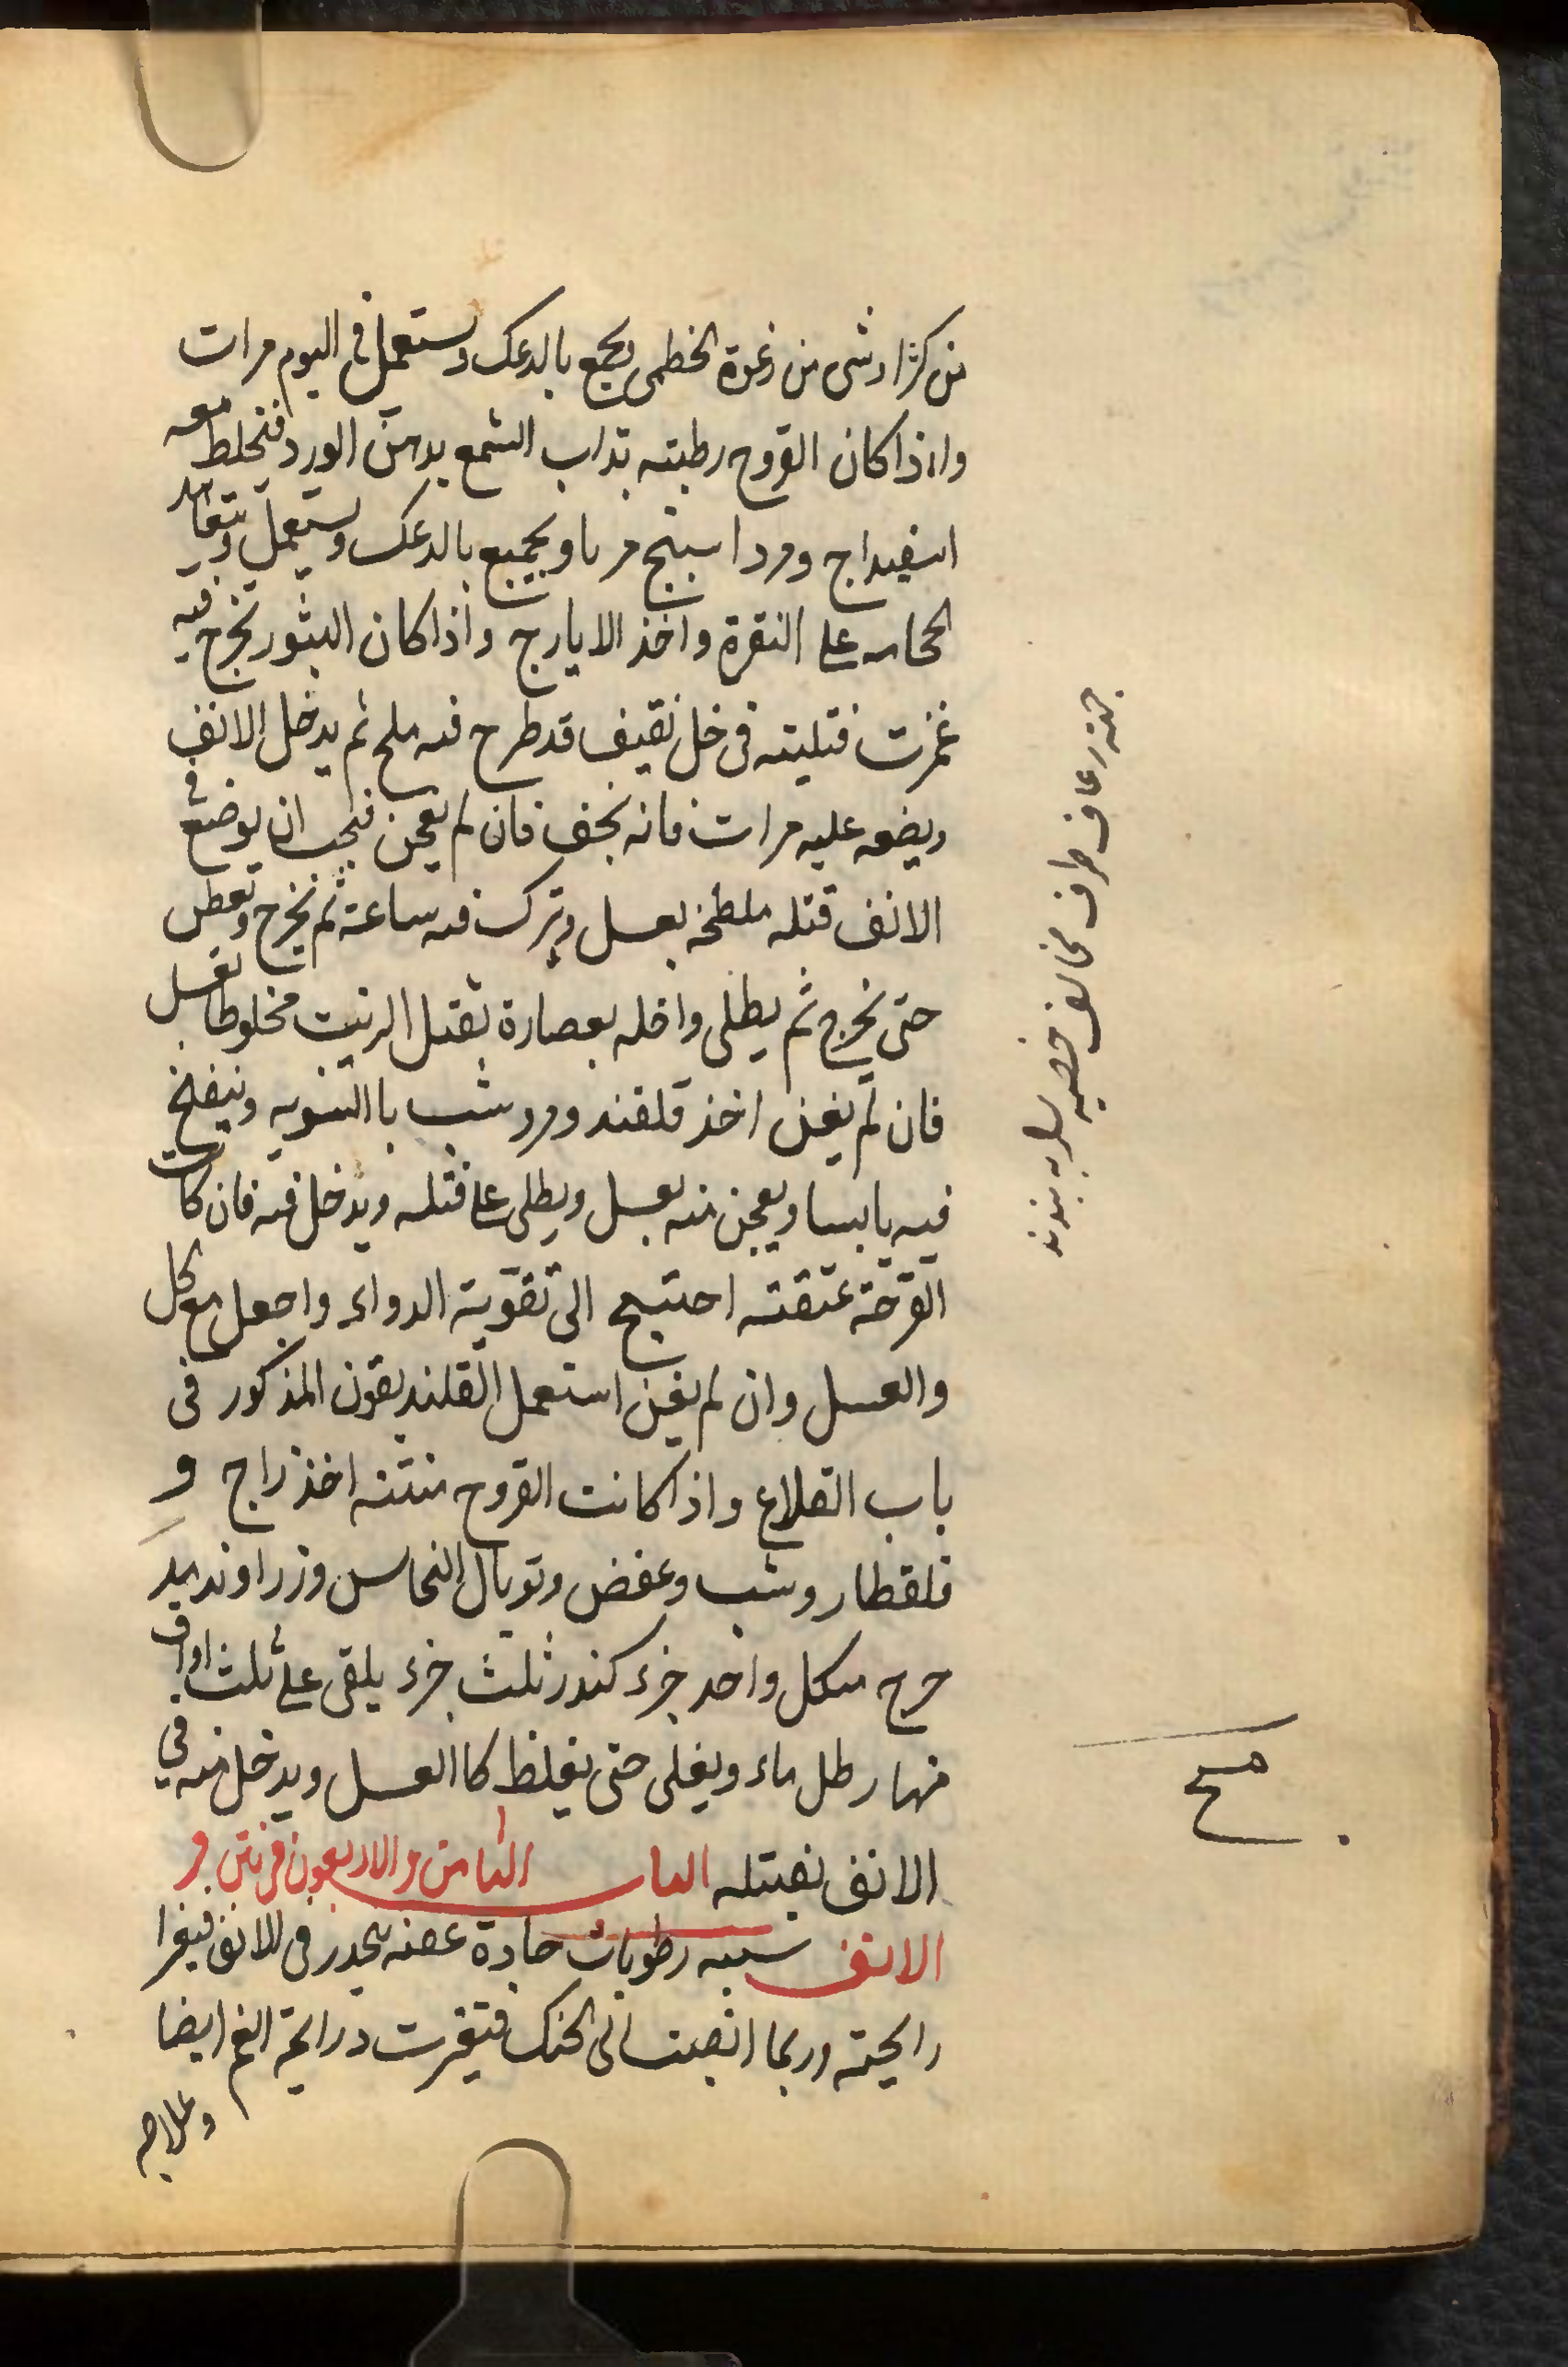 من كثيرا وشى من رغوة الخطمى يجمع بالدعك ويستعمل فى اليوم مرات
واذا كان القروح رطبته بذاب الشمع بدهن الورد فتخلط معه
اسفيداج ومرداسنج مربا ويجمع بالدعك ويستعمل وتتعاهد
الحجامه على النقرة واخذ الايارج واذا كان البثور تخرج فيه
غمزت فتليته فى خل ثقيف قد طرح فيه ملح ثم يدخل الانف
ويضعه عليه مرات فانه يجف فان لم يغن فيجب ان يوضع فى
الانف فتله ملطخة بعسل ويترك فيه ساعة ثم تخرج وتعطس
حتى تخرج ثم يطلى داخله بعصارة بقتل الزيت مخلوطا بعسل
فان لم يغن اخذ قلقند ومر وشب باالسويه وينفخ
فيه يابسا ويعجن منه بعسل ويطلى على فتله ويدخل فيه فان كانت
القرحة عتقته احتيج الى تقوية الدواء واجعل مع كل
والعسل وان لم يغن استعمل القلنديقون المذكور فى
باب القلاع واذا كانت القروح منتنه اخذ زاج و
قلقطار وشب وعفص وتوبال النحاس وزراوند مد
حرج من كل واحد جزء كندر ثلث جزء يلقى على ثلث اواق
منها رطل ماء ويغلى حتى يغلظ كاالعسل ويدخل منه فى
الانف بفتله الباب الثامن والاربعون فى نتن و
الانف سببه رطوبات حادة عفنه تنحدر فى الانف فيغيرا
رايحته وربما انصبت الى الحنك فتغيرت درايحة الفم ايضا
وعلاجه
جهة رعاف طرف مخالف خصيه را به بندند
مح